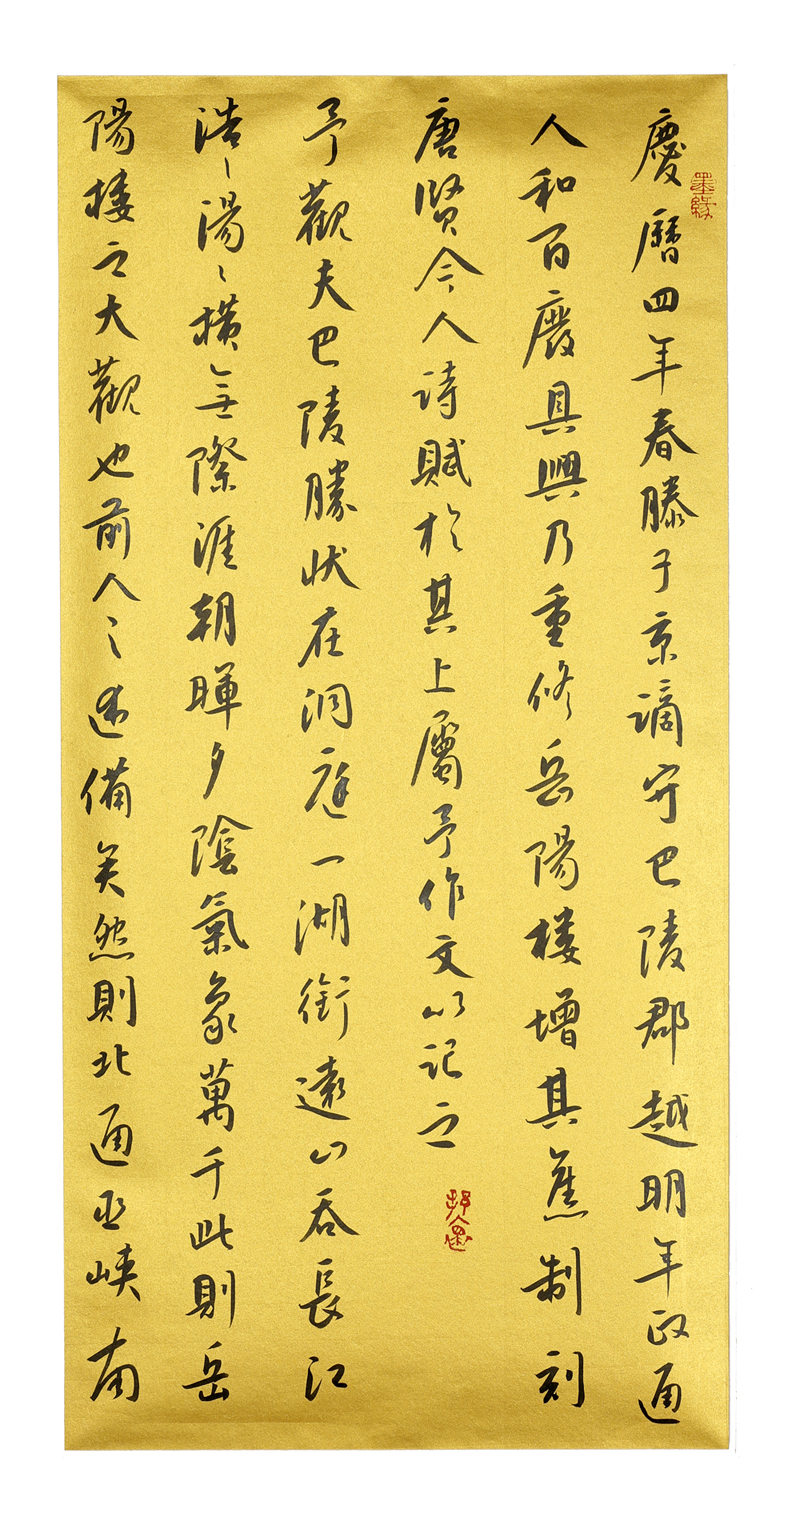 慶曆四年春滕子京謫守巴陵郡越明年政通
人和百廢具興乃重修岳陽樓增其舊制刻
唐賢今人詩賦於其上屬予作文以記之
予觀夫巴陵勝狀在洞庭一湖銜遠山吞長江
浩浩湯湯橫無際涯朝暉夕陰氣象萬千此則岳
陽樓之大觀也前人之述備矣然則北通巫峽南